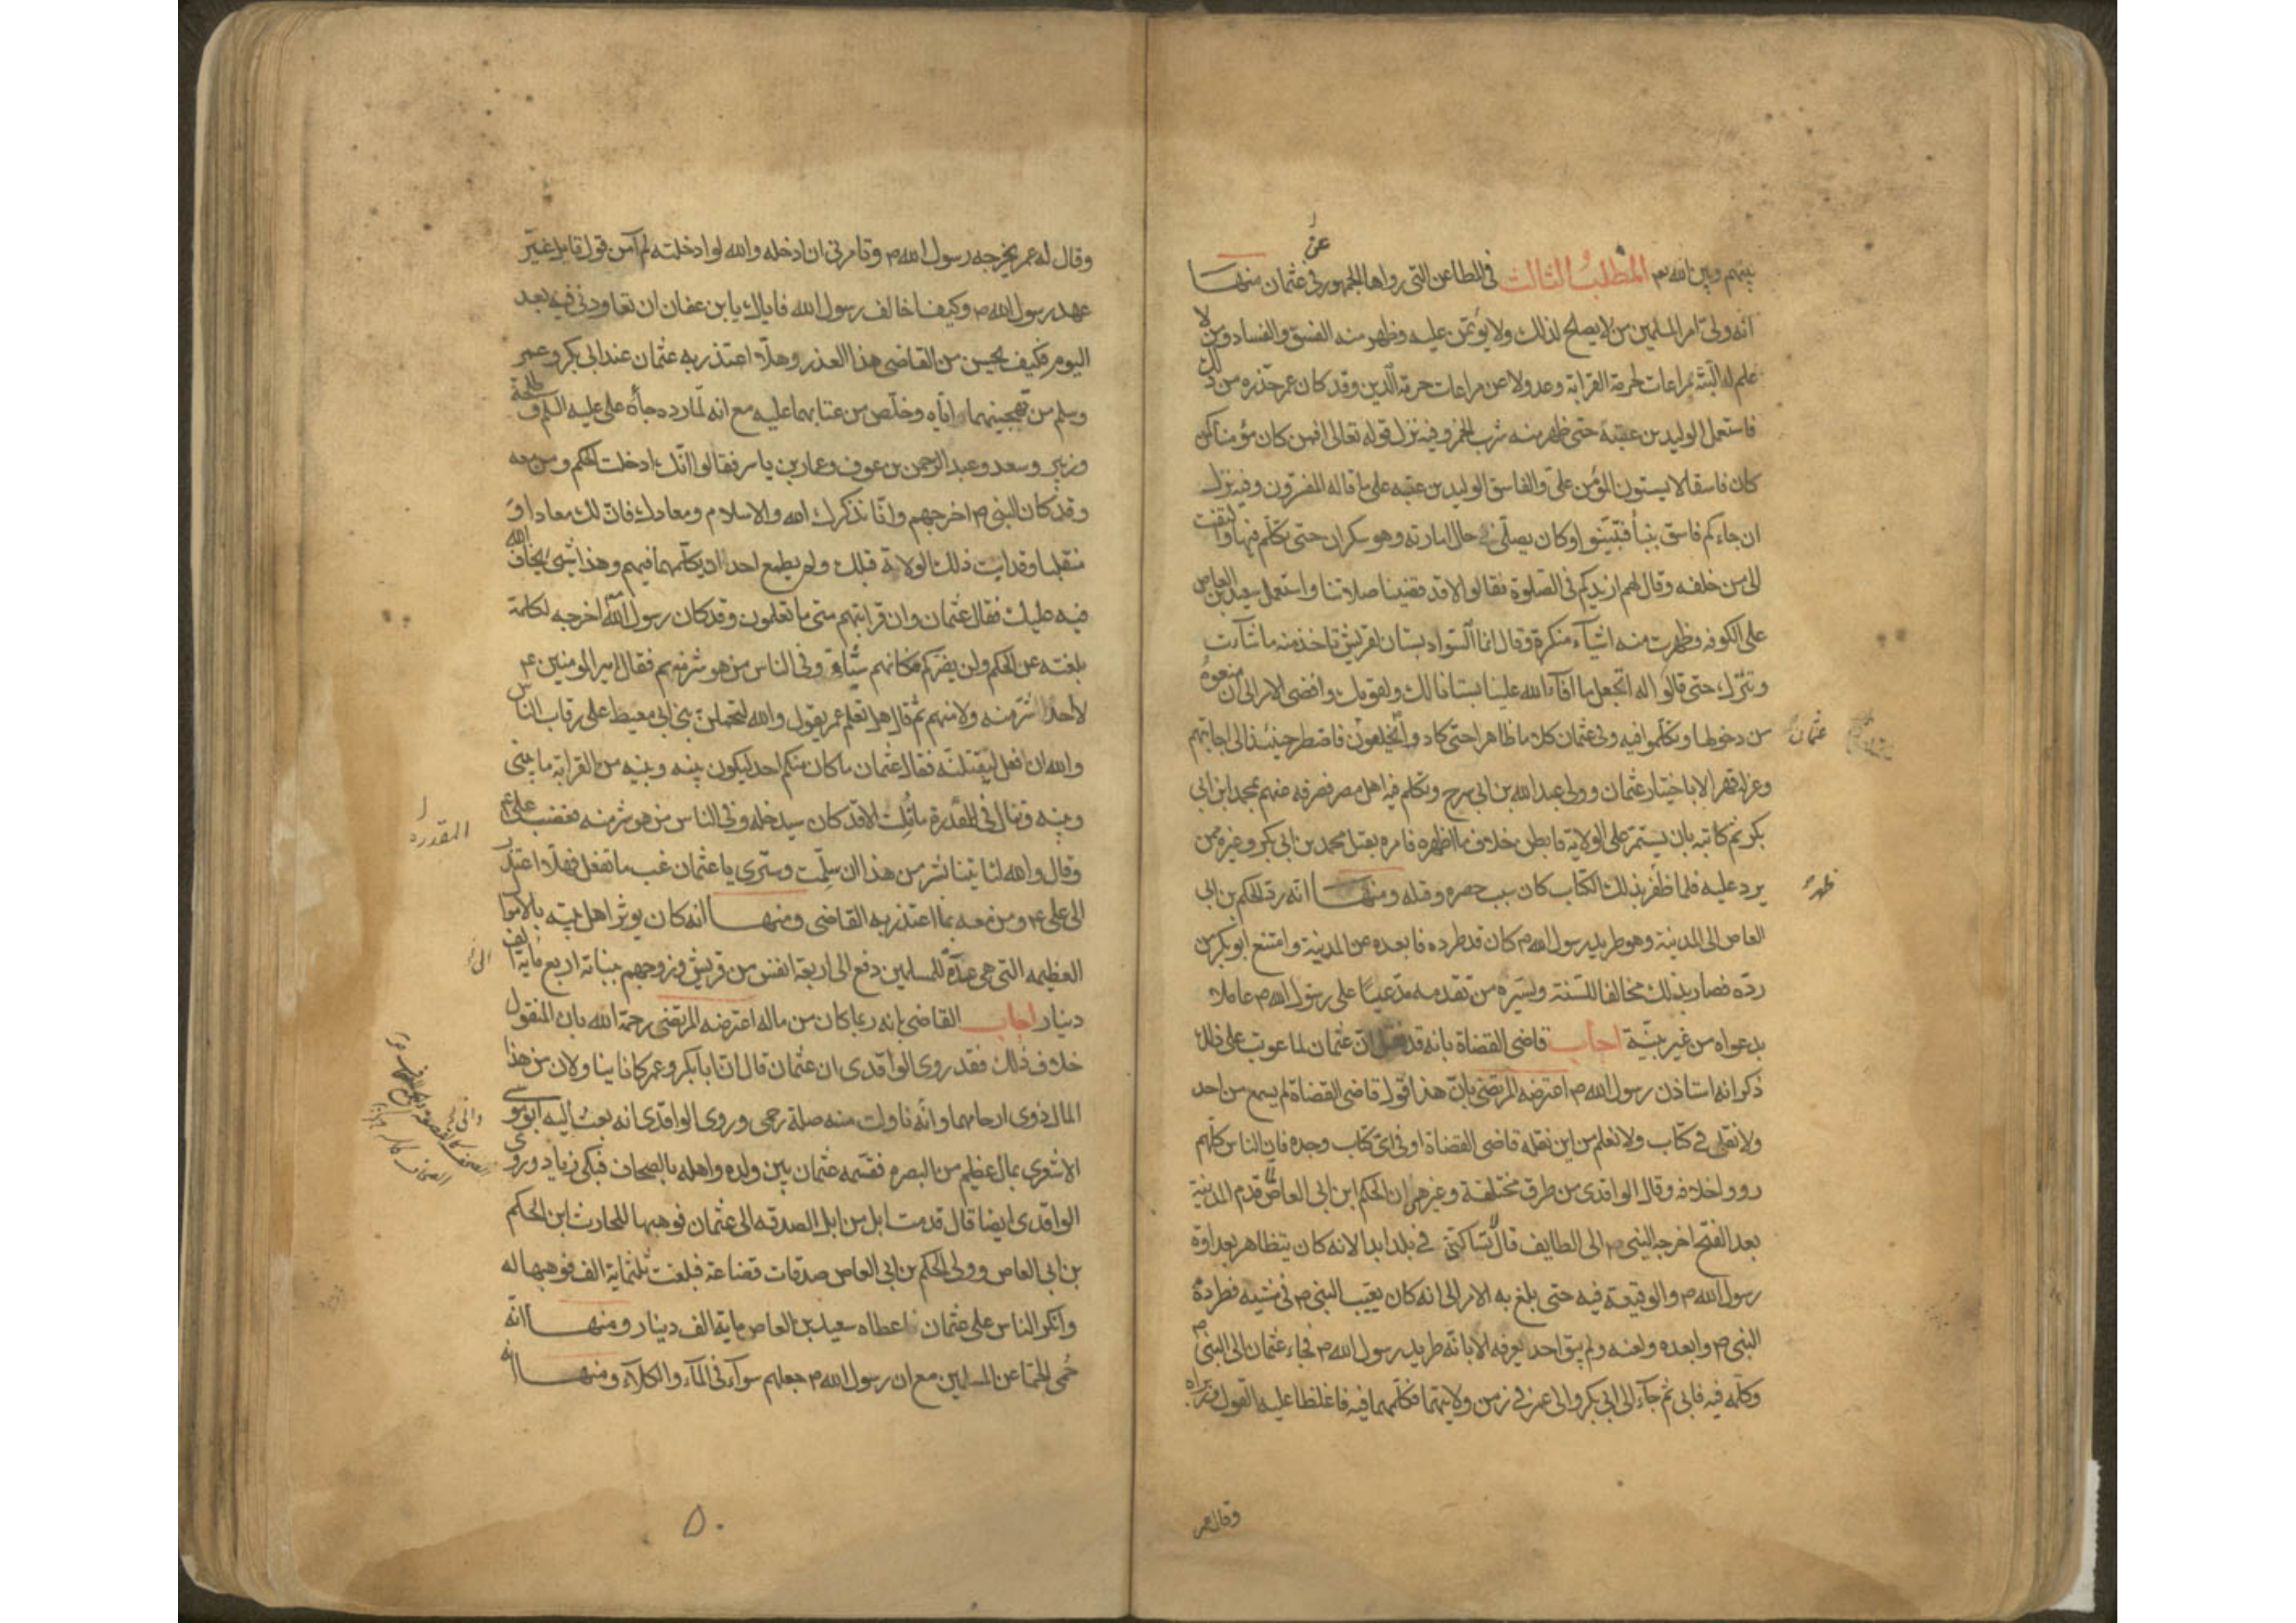 بينهم وبين الله تعـ المطلب الثالث في المطاعن التي رواها الجمهور في عثمان منهــا
عن
انه ولى امر المسلمين من لا يصلح لذلك ولا يؤتمن عليه وظهر منه الفسق والفساد ومن لا
علم له البتة مراعات لحرمة القرابة وعدولا عن مراعات حرمة الدين وقد كان عمر حذره من ذلك
فاستعمل الوليد بن عقبة حتى ظهر منه شرب الخمر وفيه نزل قوله تعالى افمن كان مؤمنا كمن
كان فاسقا لا يستون المؤمن علي والفاسق الوليد بن عقبه على ما قاله المفسرون وفيه نزل
ان جاءكم فاسق بنبأ فتبينوا وكان يصلي في حال امارته وهو سكران حتى تكلم فيها والتفت
الى من خلفه وقال لهم ازيدكم في الصلوة فقالوا لا قد قضينا صلاتنا واستعمل سعيد بن العاص
على الكوفه وظهرت منه اشياء منكرة وقال انما السواد بستان لقريش تاخذ منه ما شاءت
وتترك حتى قالوا له اتجعل ما افاء الله علينا بستانا لك ولقومك وافضى الامر الى ان منعوه
من دخولها وتكلموا فيه وفي عثمان كلاما ظاهرا حتى كادوا يخلعون فاضطر حينئذ الى اجابتهم
عثمان
وعزله قهرا لا باختيار عثمان وولى عبد الله بن ابي سرح وتكلم فيه اهل مصر فصرفه عنهم بمحمد ابن ابي
بكر ثم كاتبه بان يستمر على الولاية فابطن خلاف ما اظهره فامره بقتل محمد بن ابي بكر وغيره ممن
يرد عليه فلما ظفر بذلك الكتاب كان سبب حصره وقتله ومنهــا انه رد الحكم بن ابي
ظهر
العاص الى المدينة وهو طريد رسول الله ص كان قد طرده فابعده عن المدينة وامتنع ابو بكر من
رده فصار بذلك مخالفا للسنة ولسيرة من تقدمه مدعيا على رسول الله ص عاملا
بدعواه من غير بينة اجاب قاضي القضاة بانه قد نقل ان عثمان لما عوتب على ذلك
ذكر انه استاذن رسول الله ص اعترضه المرتضى بان هذا قول قاضي القضاة لم يسمع من احد
ولا نقل في كتاب ولا نعلم من اين نقله قاضي القضاة او في اي كتاب وجده فان الناس كلهم
رووا خلافه وقال الواقدي من طرق مختلفة وغيره ان الحكم ابن ابي العاص لما قدم المدينة
بعد الفتح اخرجه النبي ص الى الطايف قال لا تساكنني في بلد ابدا لانه كان يتظاهر بعداوة
رسول الله ص والوقيعة فيه حتى بلغ به الامر الى انه كان يعيب النبي ص في مشيه فطرده
النبي ص وابعده ولعنه ولم يبق احد يعرفه الا بانه طريد رسول الله ص فجاء عثمان الى النبي ص
وكلمه فيه فابى ثم جاء الى ابي بكر والى عمر في زمن ولايتهما فكلمهما فيه فاغلظا عليه القول وزبراه
وقال عمر
وقال له عمر يخرجه رسول الله ص وتامرني ان ادخله والله لو ادخلته لم آمن قول قايل غير
عهد رسول الله ص وكيف اخالف رسول الله فاياك يا بن عفان ان تعاودني فيه بعد
اليوم فكيف يحسن من القاضي هذا العذر وهلا اعتذر به عثمان عند ابي بكر وعمر
وسلم من تهجينهما اياه وخلص من عتابهما عليه مع انه لما رده جاءه علي عليه السلم وطلحة
وزبير وسعد وعبد الرحمن بن عوف وعمار بن ياسر فقالوا انك ادخلت الحكم ومن معه
وقد كان النبي ص اخرجهم وانا نذكرك الله والاسلام ومعادك فان لك معادا و
منقلبا وقد ابت ذلك الولاة قبلك ولم يطمع احد ان يكلمهما فيهم وهذا شيء نخاف الله
فيه عليك فقال عثمان وان قرابتهم مني ما تعلمون وقد كان رسول الله اخرجه لكلمة
بلغته عن الحكم ولن يضركم مكانهم شيئا وفي الناس من هو شر منهم فقال امير المومنين ع
لا احد شر منه ولا منهم ثم قال هل تعلم عمر يقول والله ليحملن بني ابي معيط على رقاب الناس
والله ان فعل ليقتلنه فقال عثمان ما كان منكم احد ليكون بينه وبينه من القرابة ما بيني
وبينه وينال في المقدرة ما نلت الا قد كان سيدخله وفي الناس من هو شر منه فغضب علي ع
المقدرة
وقال والله لتاتينا بشر من هذا ان سلمت وسترى يا عثمان غب ما تفعل فهلا اعتذر
الى علي ع ومن معه بما اعتذر به القاضي ومنهــا انه كان يوثر اهل بيته بالاموال
العظيمه التي هي عدة للمسلمين دفع الى اربعة انفس من قريش وزوجهم ببناته اربع ماية الف
الى
دينار اجاب القاضي بانه ربما كان من ماله اعترضه المرتضى رحمة الله بان المنقول
خلاف ذلك فقد روى الواقدي ان عثمان قال ان ابا بكر وعمر كانا يناولان من هذا
المال ذوى ارحامهما وانه ناولت منه صلة رحمي وروى الواقدي انه بعث اليه ابو موسى
الاشعري بمال عظيم من البصره فقسمه عثمان بين ولده واهله بالصحاف فبكى زياد وروى
الواقدي ايضا قال قدمت ابل من ابل الصدقه الى عثمان فوهبها للحارث ابن الحكم
بن ابي العاص وولى الحكم بن ابي العاص صدقات قضاعة فبلغت ثلثماية الف فوهبها له
وانكر الناس على عثمان اعطاه سعيد بن العاص ماية الف دينار ومنهــا انه
حمى الحما عن المسلمين مع ان رسول الله ص جعلهم سواء في الماء والكلاء ومنهــا انه
٥٠